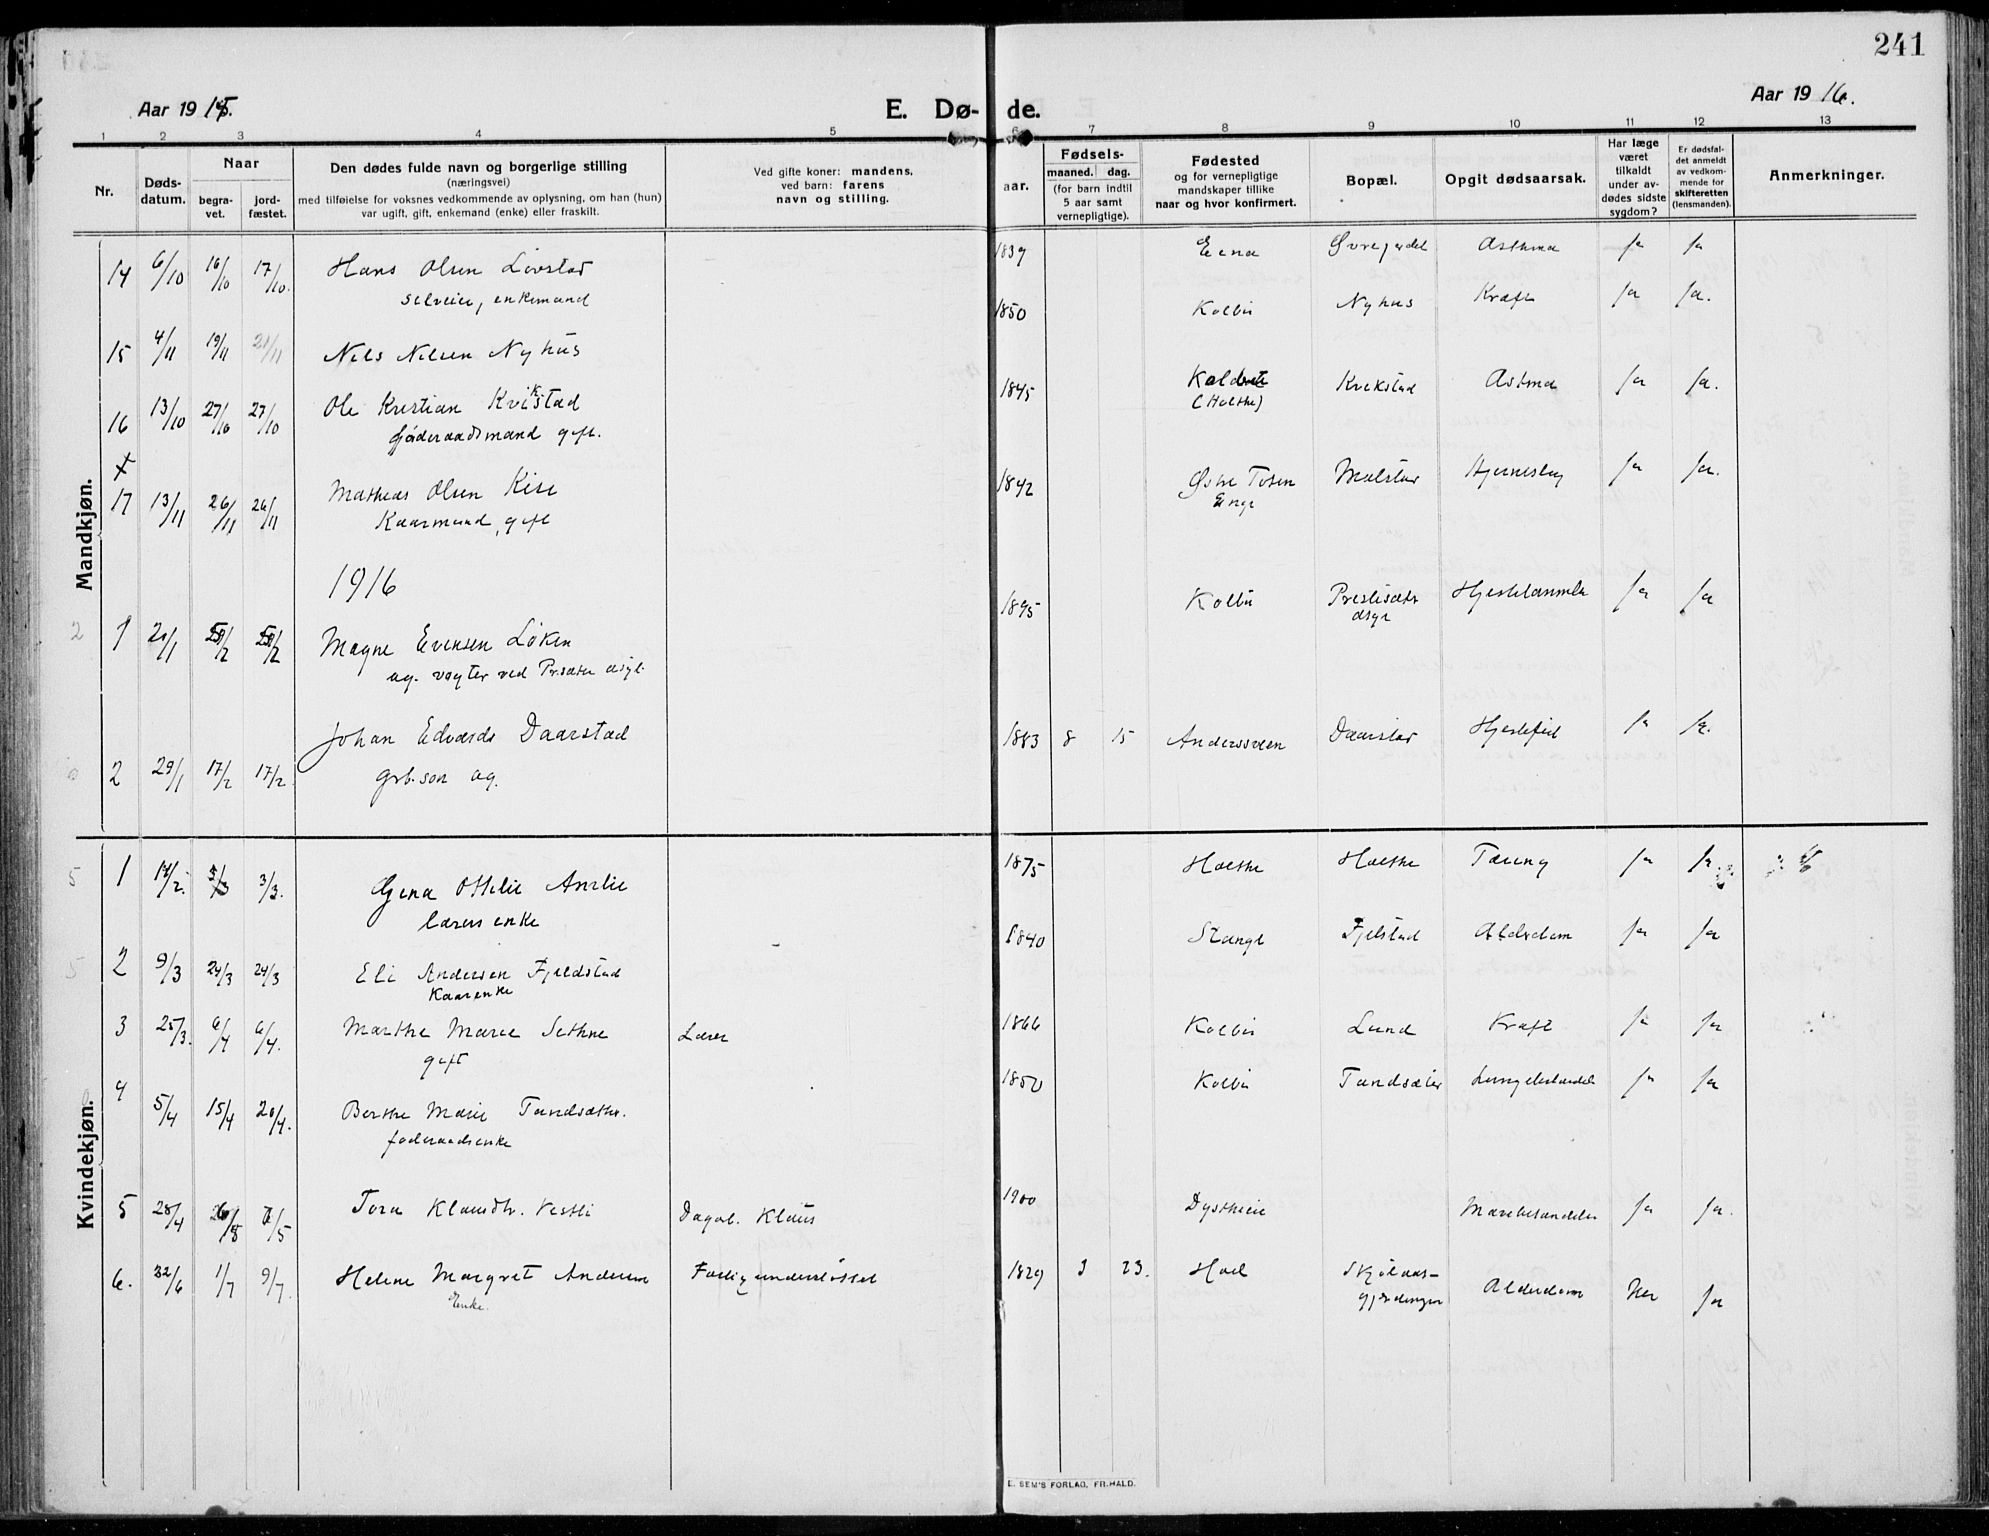 241
Aar 1915.
E. Dø- de.
Aar 1916.
1 2 3 4 5 6 7 8 9 10 11 12 13
Nr.
Døds-
datum.
Naar
begra-
vet.
jord-
fæstet.
Den dødes fulde navn og borgerlige stilling
(næringsvei)
med tilføielse for voksnes vedkommende av oplysning, om han (hun)
var ugift, gift, enkemand (enke) eller fraskilt.
Ved gifte koner: mandens,
ved barn: farens
navn og stilling.
Fødsels-
aar.
maaned. dag.
(for barn indtil
5 aar samt
vernepligtige).
Fødested
og for vernepligtige
mandskaper tillike
naar og hvor konfirmert.
Bopæl.
Opgit dødsaarsak.
Har læge
været
tilkaldt
under av-
dødes sidste
sygdom?
Er dødsfal-
det anmeldt
av vedkom-
mende for
skifteretten
(lensmanden).
Anmerkninger.
Mandkjøn.
14 6/10 16/10 17/10. Hans Olsen Lövstad 1839 Eena Øvregjerdet Asthma ja ja
selveier, enkemand
15 4/11 19/11 21/11 Nils Nilsen Nyhus 1850 Kolbu Nyhus Kræft ja ja.
16 13/10 27/10 27/10 Ole Kristian Kvikstad 1845 Kolbu Kvikstad Astma ja ja.
(Holthe)
föderaadsmand gift.
17 13/11 26/11 26/11 Mathias Olsen Kise 1842 Østre Toten Molstad Hjerneslag ja ja.
Kaarmand, gift
1916
1 21/1 Magne Evensen Löken 1895 Kolbu Prestesæter Hjertelammelse ja ja
asyl
ug. vogter ved Pr.sæter asyl.
2 29/1 17/2 17/2 Johan Edvards Daarstad 1883 8 15 Anderssveen Daarstad Hjertefeil ja ja.
grb.søn ug.
Kvindekjøn.
1 3/3 3/3. Gina Ottilie Amlie 1875 Holthe Holthe Tæring ja ja
lærers enke
2 9/3 24/3 24/3 Eli Andersen Fjeldstad 1840 Stange Fjelstad Alderdom ja ja
Kaarenke
3 25/3. 6/4 6/4. Marthe Marie Sethne Lærer 1866 Kolbu Lund Kræft ja ja
gift
4 5/4 15/4 20/4. Berthe Marie Tandsæther. 1850 Kolbu Tandsæter Lungebetændelse ja ja
föderaadsenke
5 28/4 Tora Klausdtr. Vestli Dagarb. Klaus 1900 Dystheie ja ja.
6. 22/6 1/7 9/7. Helene Margret Andersen Fattigunderstøttet 1829 3 23. Hoel Skjölaas- Alderdom Nei ja
gjerdingen
Enke.
E. SEM'S FORLAG, FR.HALD.